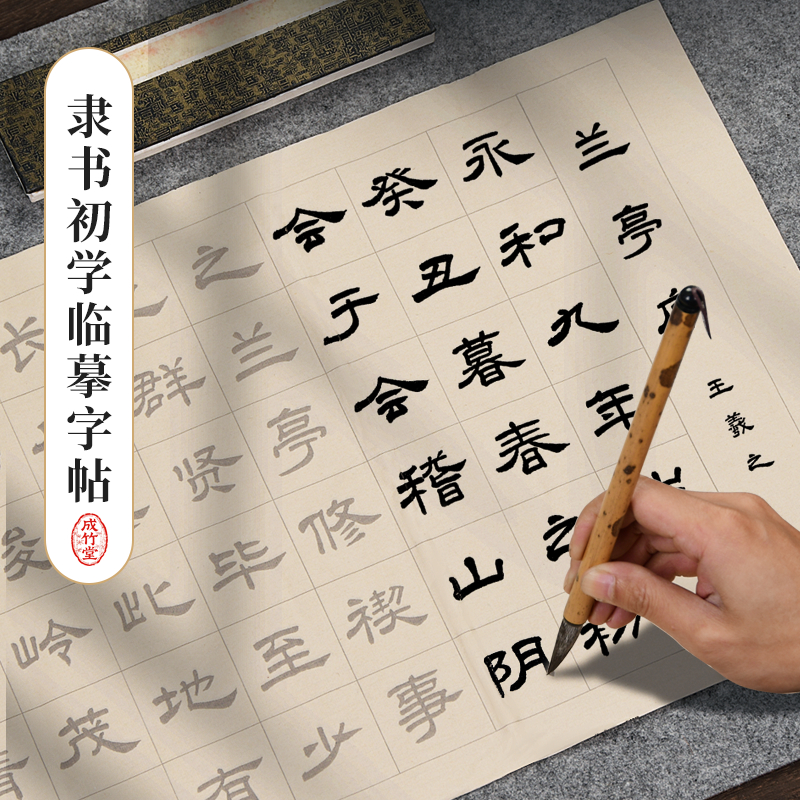 隶书初学临摹字帖
成竹堂
兰亭
王羲之
永和九年
癸丑暮春之初
会于会稽山阴
之兰亭修禊事
群贤毕至少
长
此地有
岭茂